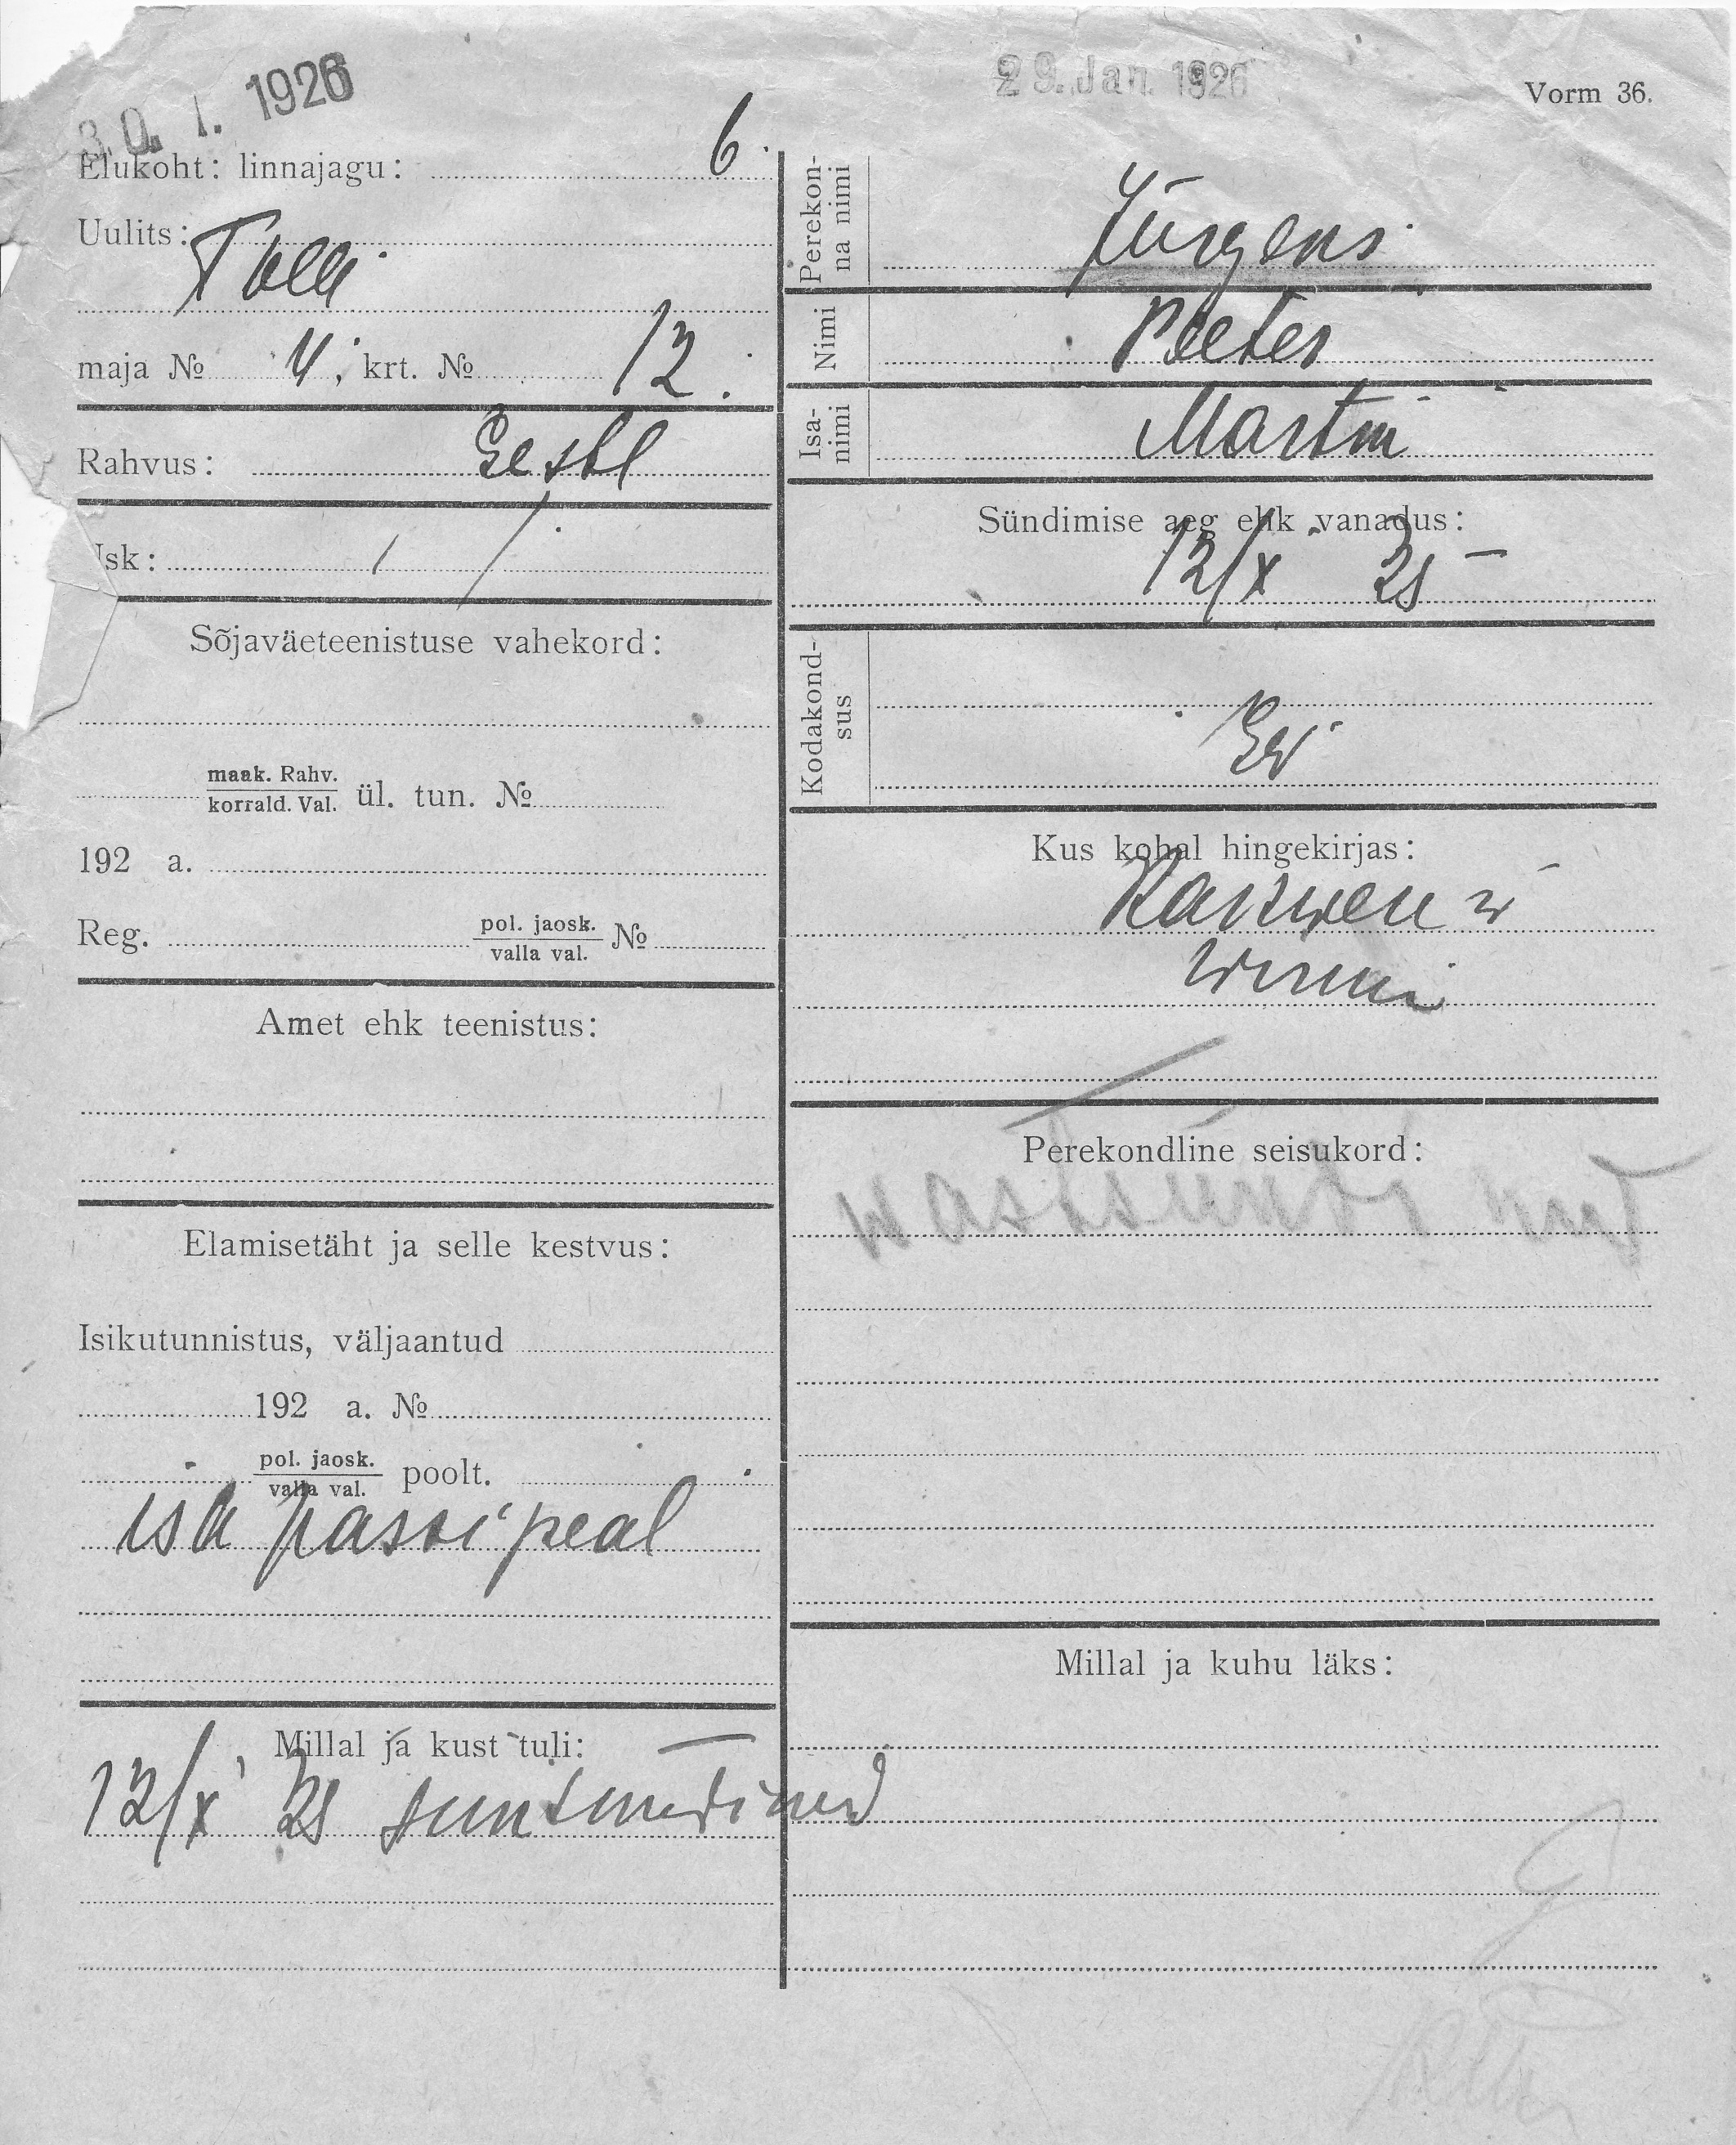 30. I. 1926
29. Jan. 1926
Vorm 36.
Elukoht: linnajagu: 6.
Uulits: Tolli
maja № 4, krt. № 12.
Rahvus: Eestl
Usk:
Sõjaväeteenistuse vahekord:
maak. Rahv.
korrald. Val. ül. tun. №
192 a.
Reg. pol. jaosk.
valla val. №
Amet ehk teenistus:
Elamisetäht ja selle kestvus:
Isikutunnistus, väljaantud
192 a. №
pol. jaosk.
valla val. poolt.
isa passi peal
Millal ja kust tuli:
12/X 25
Perekonna nimi Jürgens
Nimi Peeter
Isanimi Martin
Sündimise aeg ehk vanadus:
12/X 25
Kodakondsus Ew
Kus kohal hingekirjas:
Rakwere w
Wirum
Perekondline seisukord:
Millal ja kuhu läks: